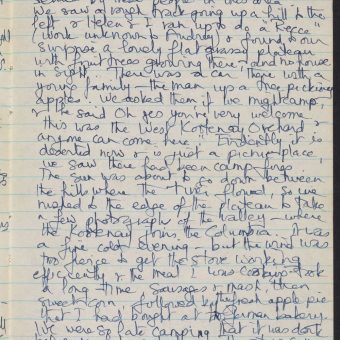 people in this area
We saw a rough track going up a hill to the
left & Helen & I ran up to do a "Recce"
(work unknown to Audrey) & found to our
surprise a lovely flat grassy plateau
with fruit trees growing there - and no house
in sight. There was a car there with a
young family - the man up a tree picking
apples. We asked them if we might camp,
& he said Oh yes you're very welcome
this was the West Kootenay Orchard &
anyone can come here. Evidently it is
deserted now & is just a picnic place,
we saw there had been camp fires.
The sun was about to go down between
the hills where the river flowed, so we
rushed to the edge of the plateau to take
a few photographs of the valley - where
the Kootenay joins the Columbia. It was
a fine cold evening - but the wind was
too fierce to get the stove working
efficiently & the meal I was cooking took
a long time. Sausages & mash, then
sweetcorn, followed by fresh apple pie
that I had bought at the farmer bakery.
We were so late camping that it was dark